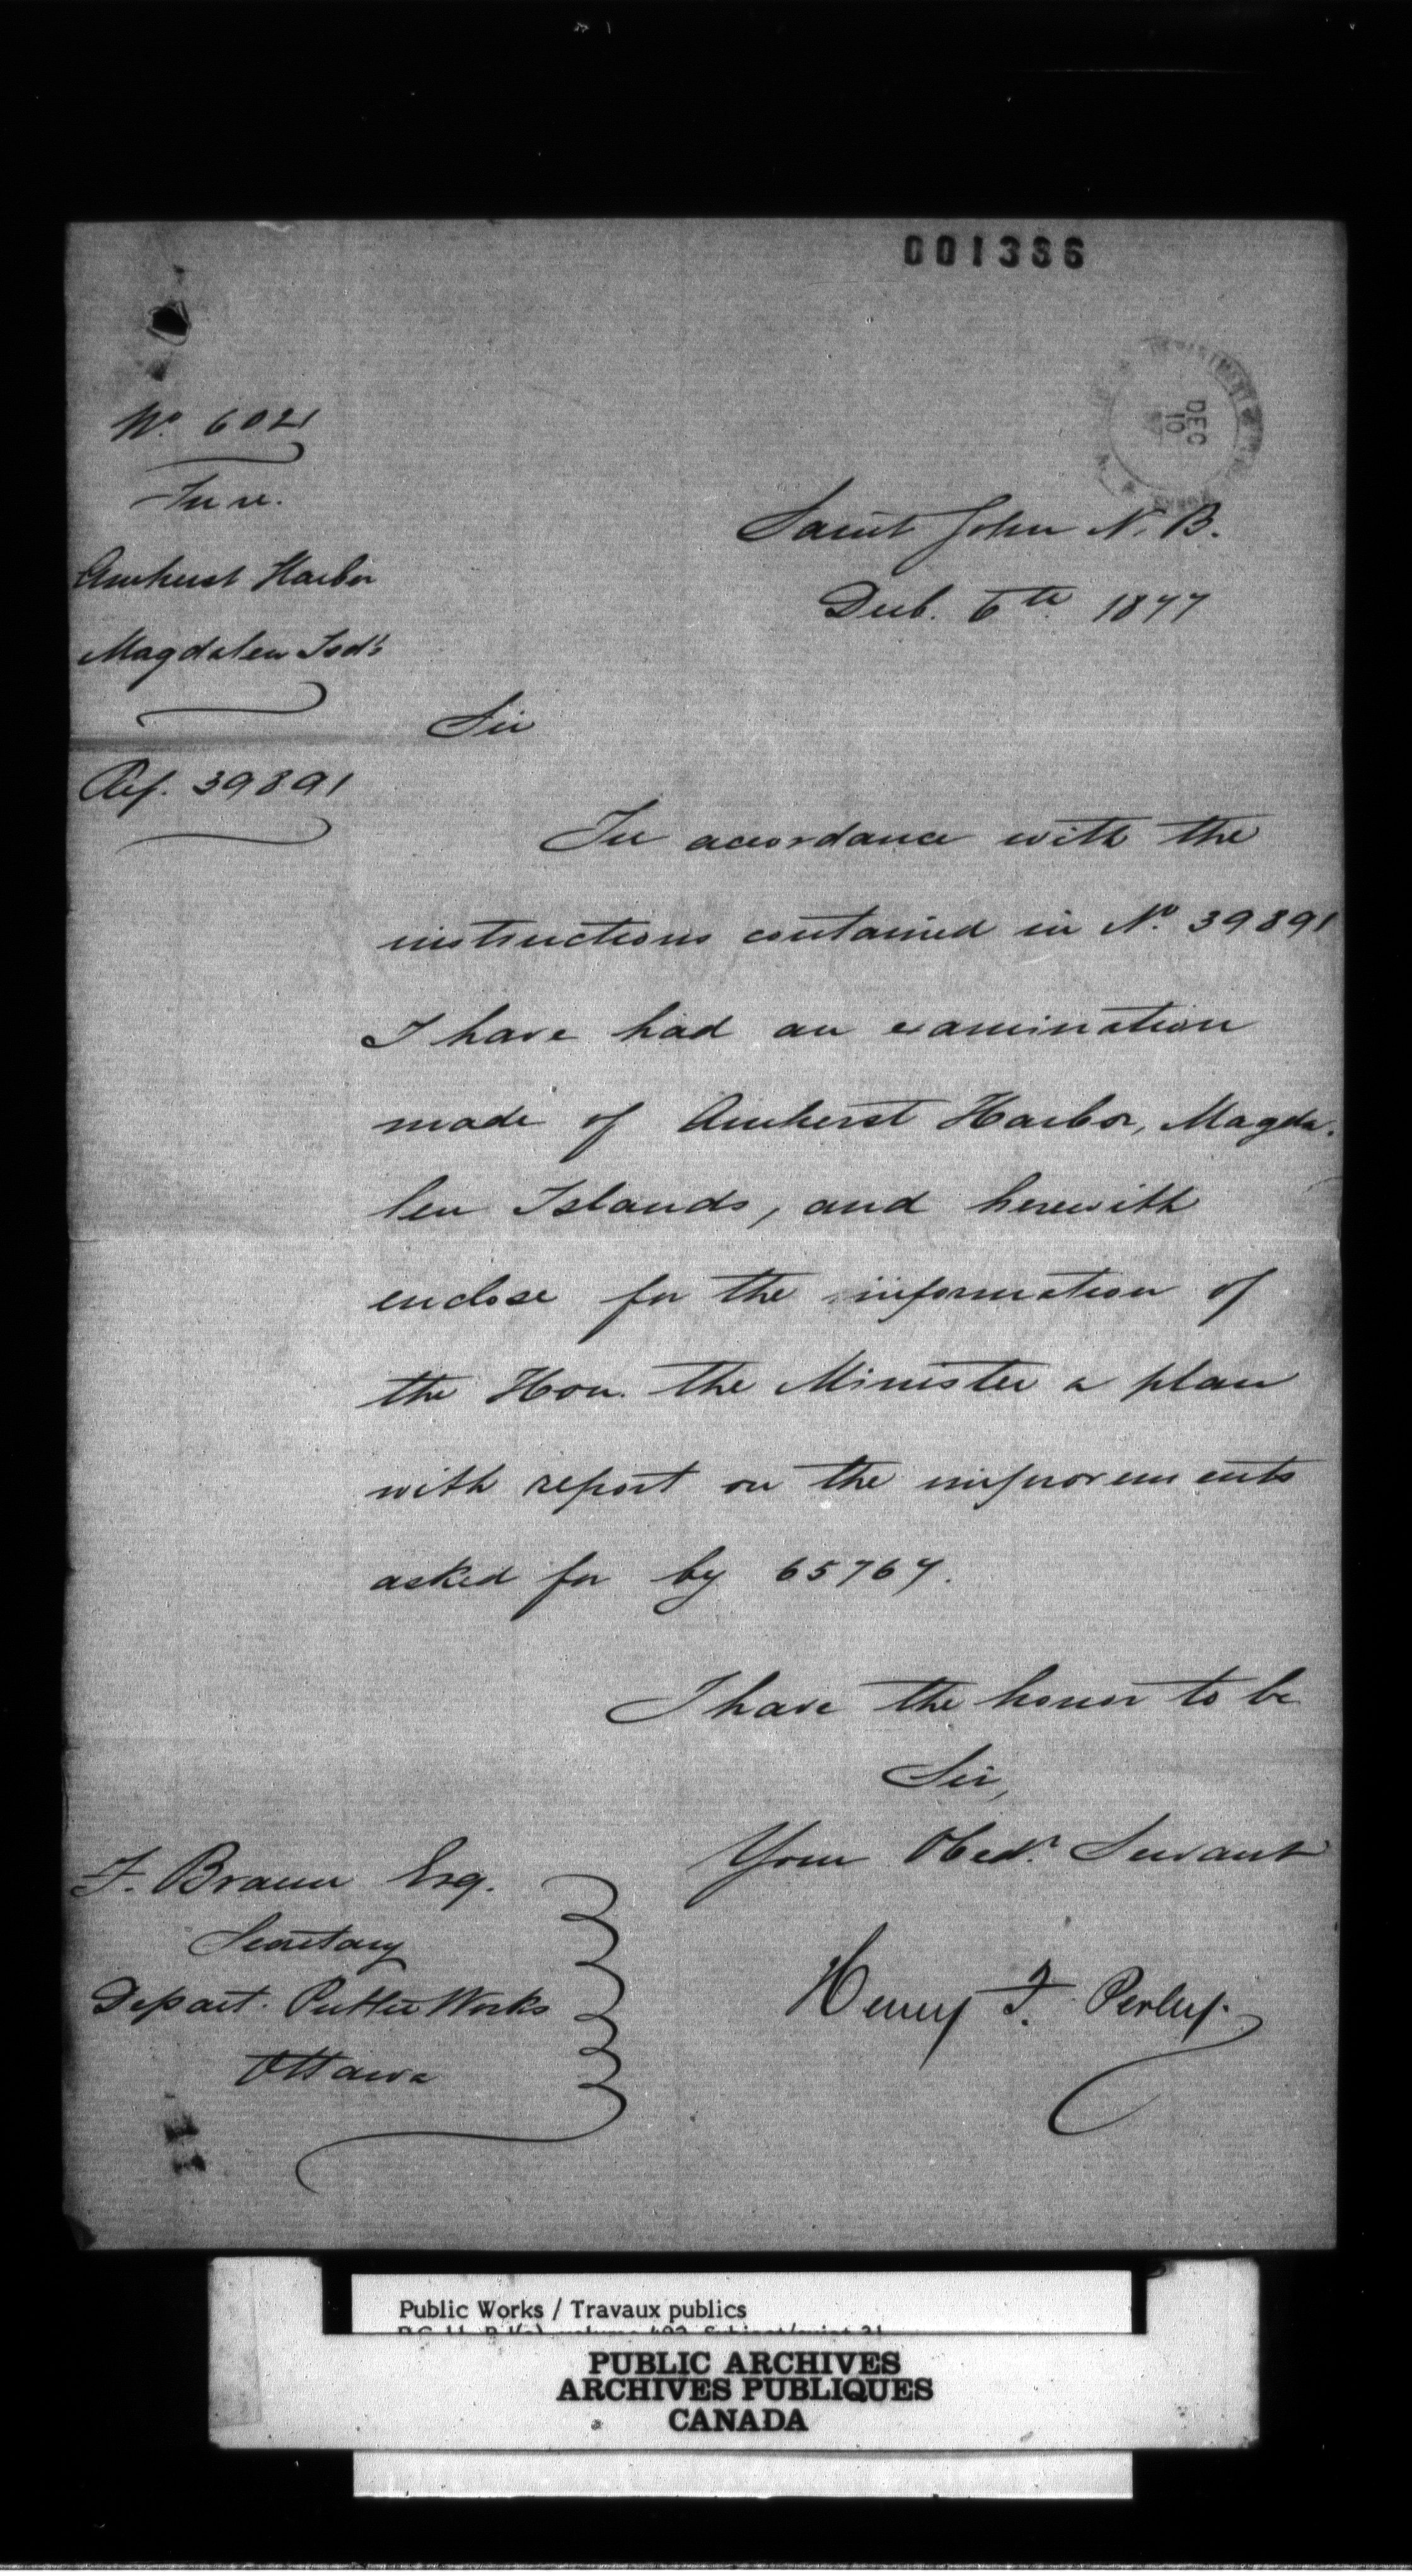 001386
DEPARTMENT
DEC
10
WORKS
No. 6021
In re.
Amherst Harbor
Magdalen Isds
Ref. 39891
Saint John N. B.
Decb. 6th 1877
Sir
In accordance with the
instructions contained in No. 39891
I have had an examination
made of Amherst Harbor, Magda-
len Islands, and herewith
enclose for the information of
the Hon. the Minister a plan
with report on the improvements
asked for by 65767.
I have the honor to be
Sir,
Your Obedt. Servant
Henry F. Perley.
F. Braun Esq.
Secretary
Depart. Public Works
Ottawa
Public Works / Travaux publics
PUBLIC ARCHIVES
ARCHIVES PUBLIQUES
CANADA